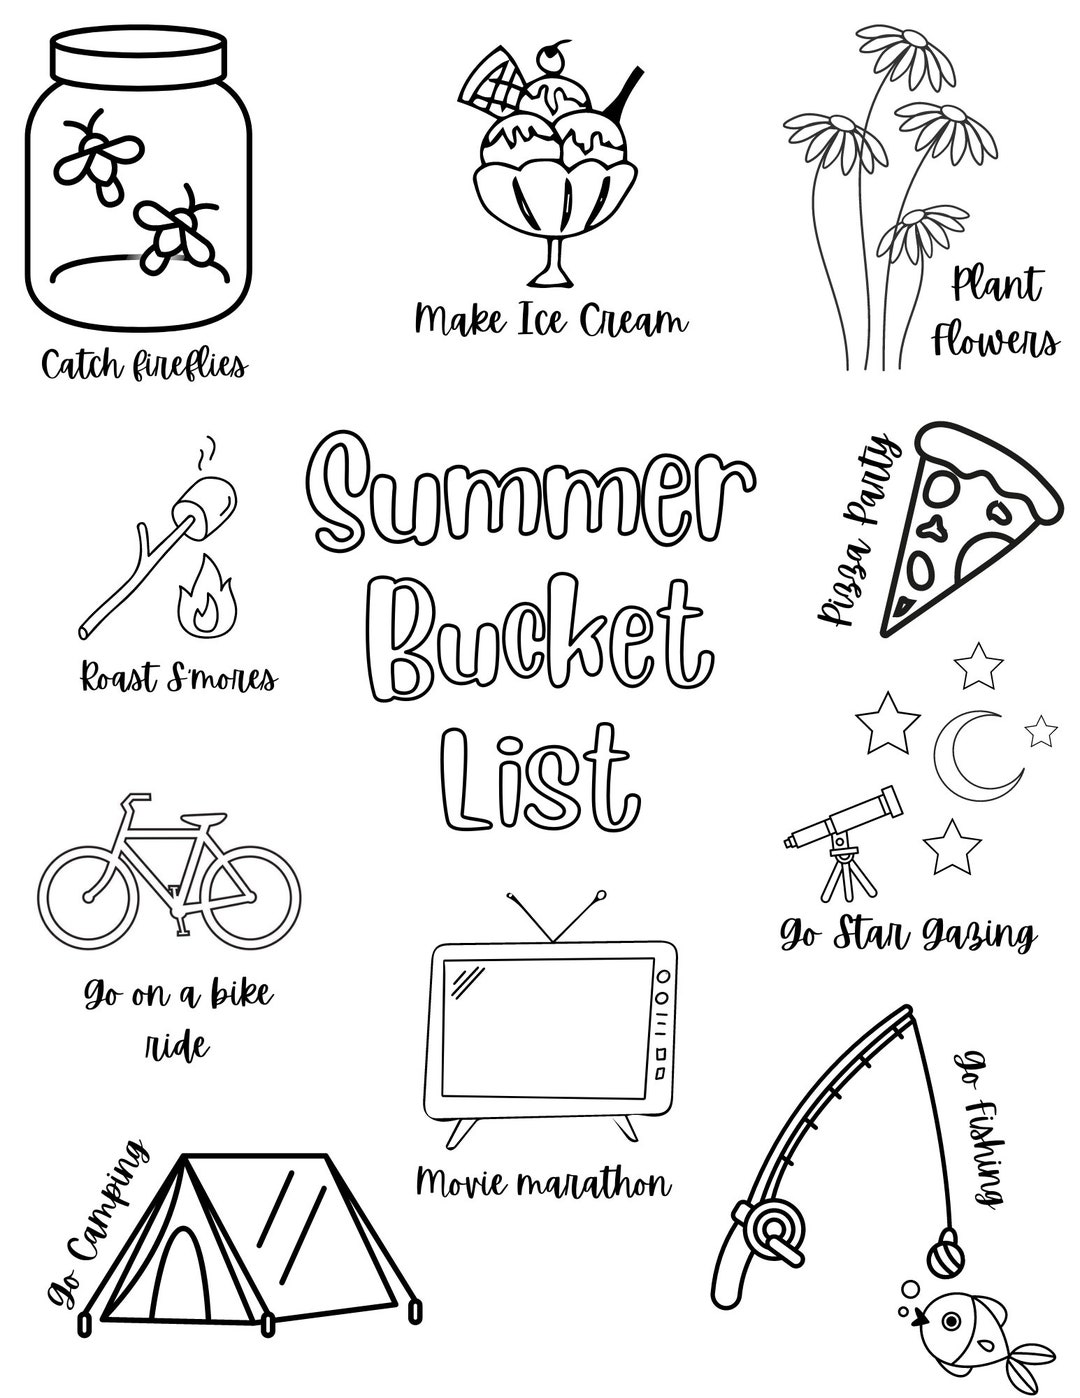 Catch fireflies
Make Ice Cream
Plant
Flowers
Roast S'mores
Summer
Bucket
List
Pizza Party
Go Star Gazing
Go on a bike
ride
Movie marathon
Go Camping
Go Fishing